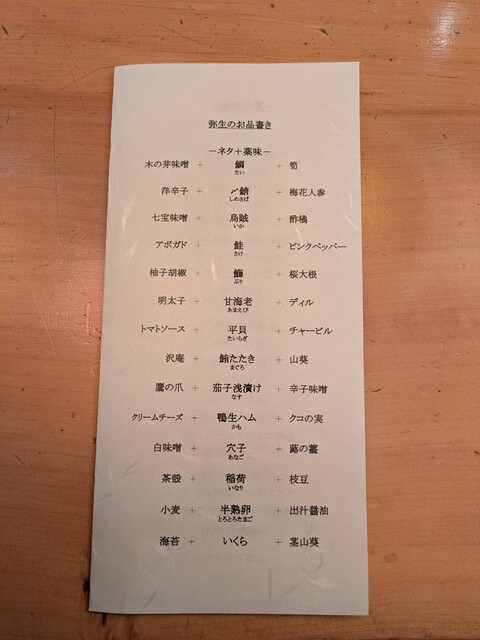 弥生のお品書き
－ネタ＋薬味－
木の芽味噌 + 鯛 + 筍
たい
洋辛子 + 〆鯖 + 梅花人参
しめさば
七宝味噌 + 烏賊 + 酢橘
いか
アボガド + 鮭 + ピンクペッパー
さけ
柚子胡椒 + 鰤 + 桜大根
ぶり
明太子 + 甘海老 + ディル
あまえび
トマトソース + 平貝 + チャービル
たいらぎ
沢庵 + 鮪たたき + 山葵
まぐろ
鷹の爪 + 茄子浅漬け + 辛子味噌
なす
クリームチーズ + 鴨生ハム + クコの実
かも
白味噌 + 穴子 + 蕗の薹
あなご
茶殻 + 稲荷 + 枝豆
いなり
小麦 + 半熟卵 + 出汁醤油
とろとろたまご
海苔 + いくら + 茎山葵